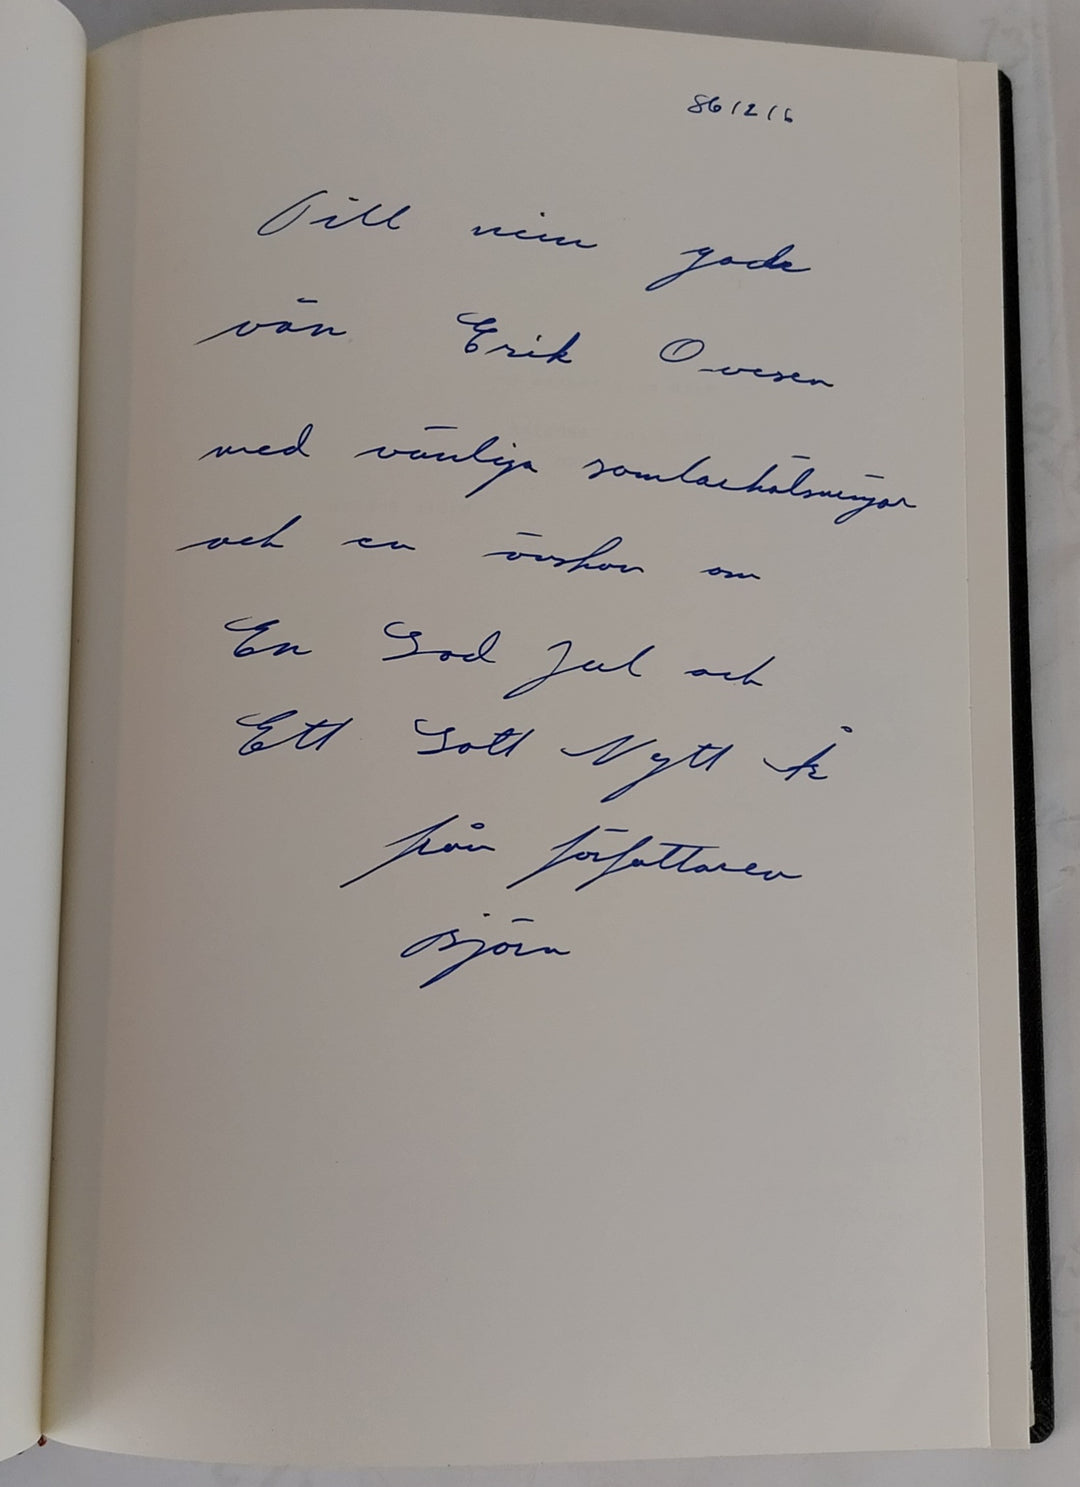 861216
Till min gode
vän Erik Ovesen
med vänliga samlarhälsningar
och en önskan om
En God Jul och
Ett Gott Nytt År
från författaren
Björn